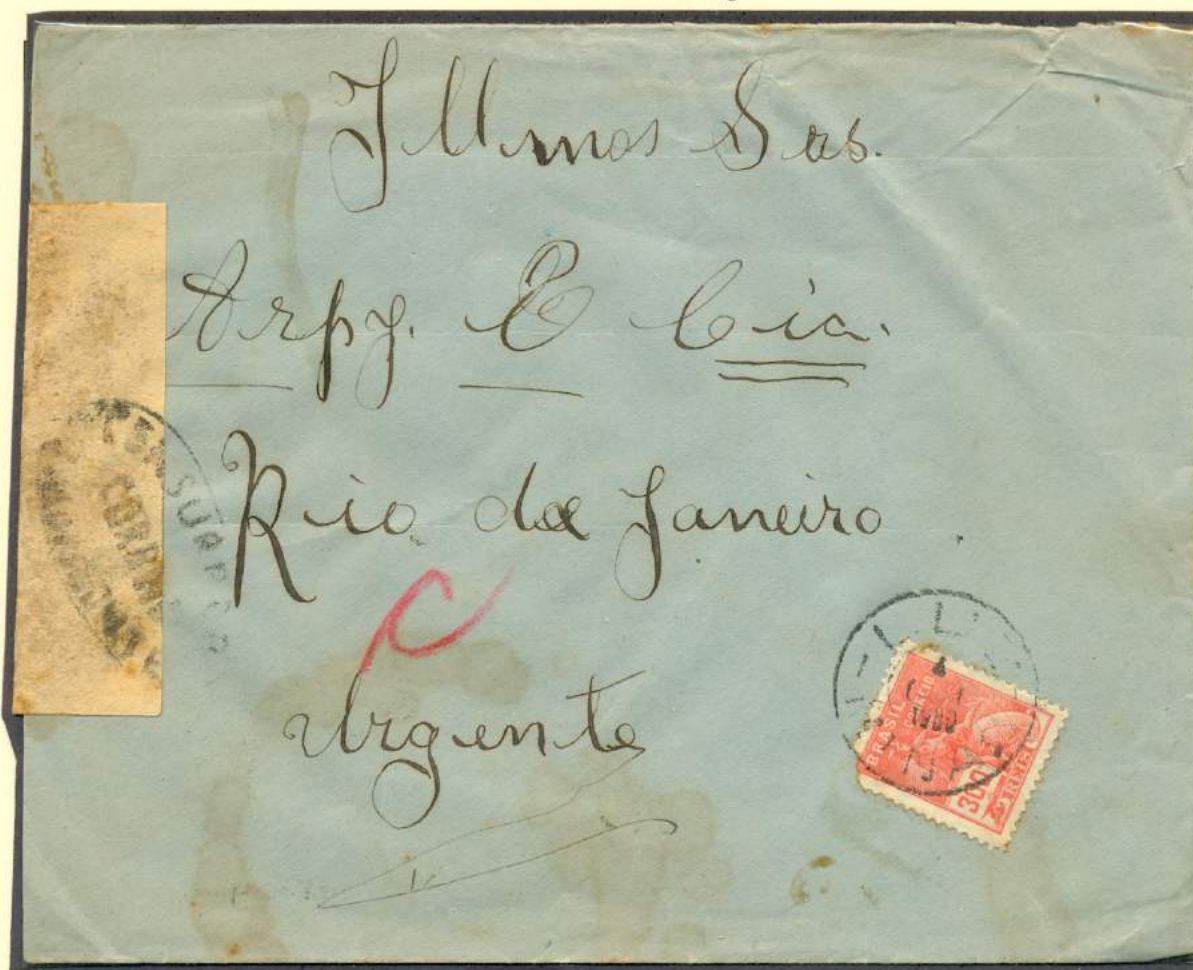 Illmos Srs.
Arp. E Cia.
Rio de Janeiro.
C
Urgente
CENSURA
BRASIL
CORREIO
300
REIS